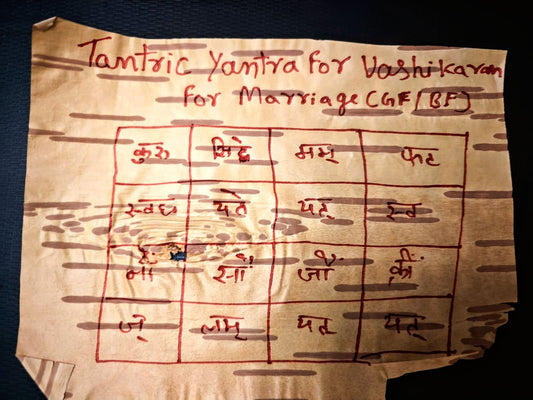 Tantric Yantra For Vashikaran
for Marriage (GF/BF)
कुरु सिद्धे मम् फट
स्वध यते यत् स्व
नों सों जों क्रीं
ज् लम् यत् यत्